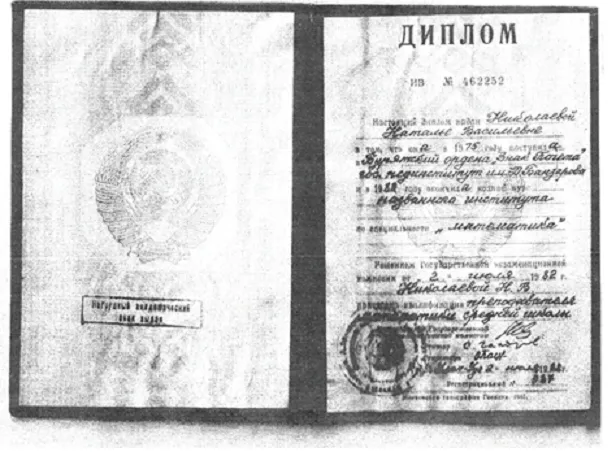 Нагрудный академический
знак выдан
ДИПЛОМ
ИВ № 462252
Настоящий диплом выдан Николаевой
Наталье Васильевне
в том, что она в 1975 году поступила
в Бурятский ордена „Знак Почета"
гос. пединститут им. Д. Банзарова
и в 1982 году окончила полный курс
названного института
по специальности „математика"
Решением Государственной экзаменационной
комиссии от 2 июля 1982 г.
Николаевой Н. В.
присвоена квалификация преподавателя
математики средней школы
Государственной
Регистрационный №